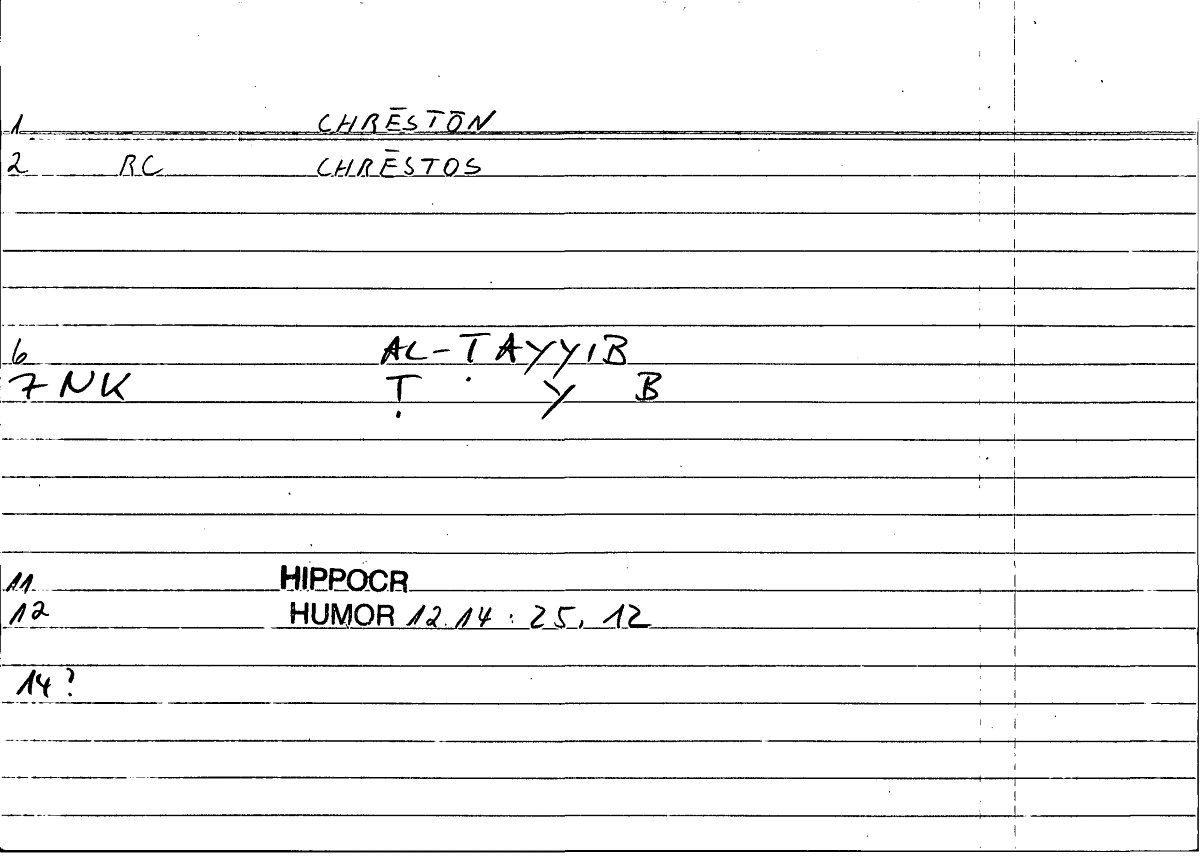 1 CHRĒSTŌN
2 RC CHRĒSTOS
6 AL-ṬAYYIB
7 NK Ṭ Y B
11 HIPPOCR
12 HUMOR 12.14 : 25, 12
14?